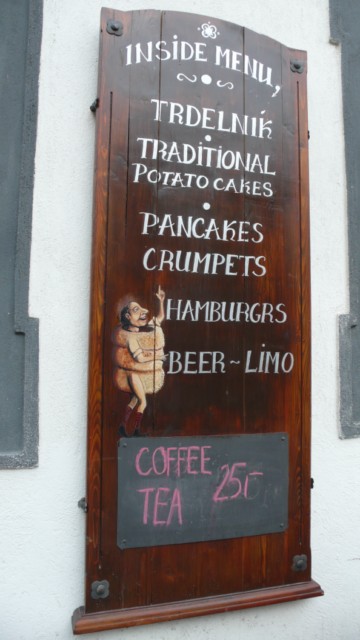 INSIDE MENU,
TRDELNÍK
TRADITIONAL
POTATO CAKES
PANCAKES
CRUMPETS
HAMBURGRS
BEER ~ LIMO
COFFEE
TEA 25,-